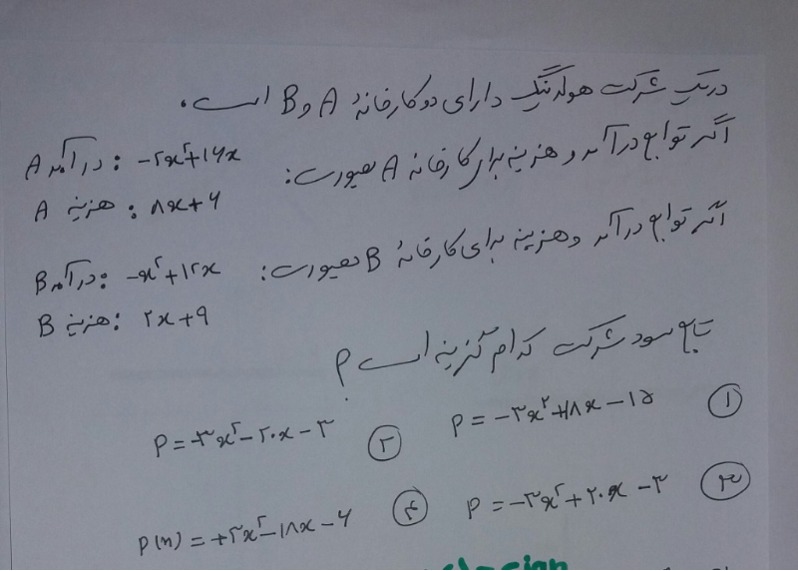 در یک شرکت هولدینگ دارای دو کارخانهٔ A و B است.
اگر توابع درآمد و هزینه برای کارخانه A بصورت:
درآمد A : -۲x²+۱۶x
هزینه A : ۸x+۶
اگر توابع درآمد و هزینه برای کارخانهٔ B بصورت:
درآمد B : -x²+۱۲x
هزینه B : ۲x+۹
تابع سود شرکت کدام گزینه است؟
① P = -۳x²+۱۸x-۱۵
② P = -۳x²-۲۰x-۳
③ P = -۳x²+۲۰x-۳
④ P(x) = +۳x²-۱۸x-۶